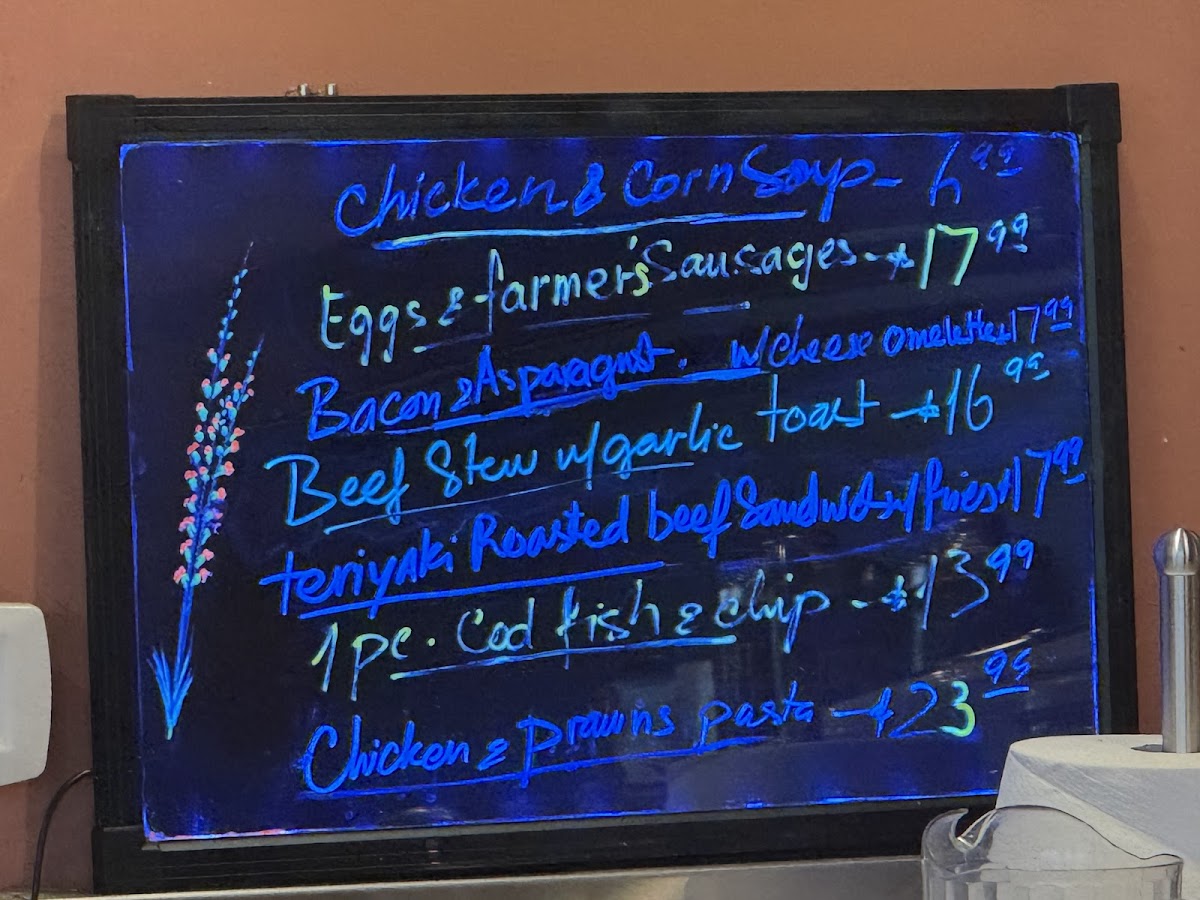 Chicken & Corn Soup - 6.99
Eggs & farmer's Sausages - $17.99
Bacon & Asparagust. w/ cheese omelette $17.99
Beef Stew w/ garlic toast - $16.99
teriyaki Roasted beef Sandwich w/ fries $17.99
1 pc. Cod fish & chip - $13.99
Chicken & prawns pasta - $23.95